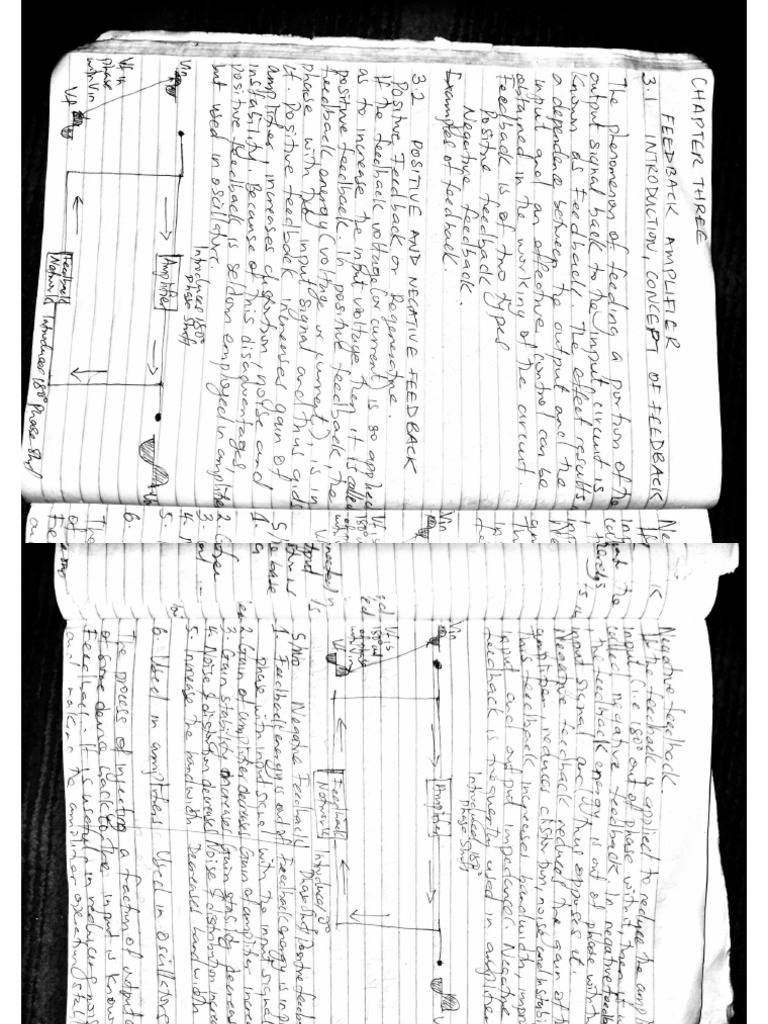 CHAPTER THREE
FEEDBACK AMPLIFIER
3.1 INTRODUCTION, CONCEPT OF FEEDBACK
The phenomenon of feeding a portion of the
output signal back to the input circuit is
known as feedback. The effect results in
a dependence between the output and the
input and an effective control can be
obtained in the working of the circuit.
Feedback is of two types
Positive feedback
Negative feedback.
Examples of feedback.
3.2 POSITIVE AND NEGATIVE FEEDBACK
Positive Feedback or Regenerative.
If the feedback voltage (or current) is so applied
as to increase the input voltage then it is called
positive feedback. In positive feedback, the
feedback energy (voltage or current) is in
phase with the input signal and thus aids
it. Positive feedback increases gain of
amplifier, increases distortion, noise and
instability. Because of this disadvantages
positive feedback is seldom employed in amplifier
but used in oscillator.
Introduces 180°
phase shift
Vin
Amplifier
Vf in
phase
with Vin
Vf
Feedback
Network
Introduces 180° phase shift
Negative feedback.
If the feedback is applied to reduce the ampli
input (i.e 180° out of phase with it then it is
called negative feedback. in negative feedback
the feedback energy is out of phase with the
input signal and thus opposes it.
Negative feedback reduced the gain of the
amplifier, reduces distortion, noise and instabi
thus feedback increases bandwidth, impro
input and output impedance. Negative
feedback is frequently used in amplifier
Introduced 180°
phase shift
Vin
Amplifier
Vf is
180° out
of phase
with Vin
Vf
Feedback
Network
Introduces 0°
S/No Negative Feedback Positive feedback
1. Feedback energy is out of Feedback energy is in p
phase with input signal with the input signal
2. Gain of amplifier decreases Gain of amplifier incre
3. Gain stability increases Gain stability decreas
4. Noise & distortion decreases Noise & distortion increa
5. Increase the bandwidth Decreases bandwidth
6. Used in amplifiers Used in oscillators
The process of inserting a fraction of output e
of some device back to the input is known
Feedback: It is useful in reducing noise
and making the amplifier operating stabl